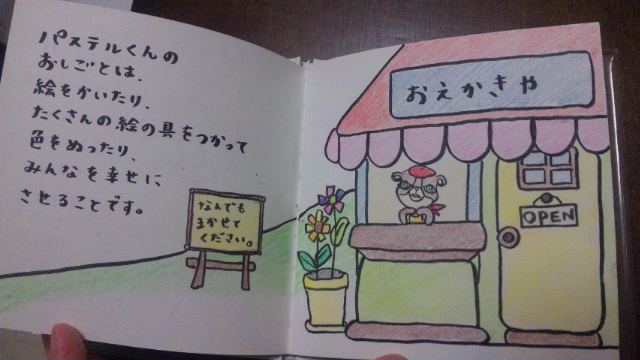 パステルくんの
おしごとは、
絵をかいたり、
たくさんの絵の具をつかって
色をぬったり、
みんなを幸せに
させることです。
なんでも
まかせて
ください。
おえかきや
OPEN